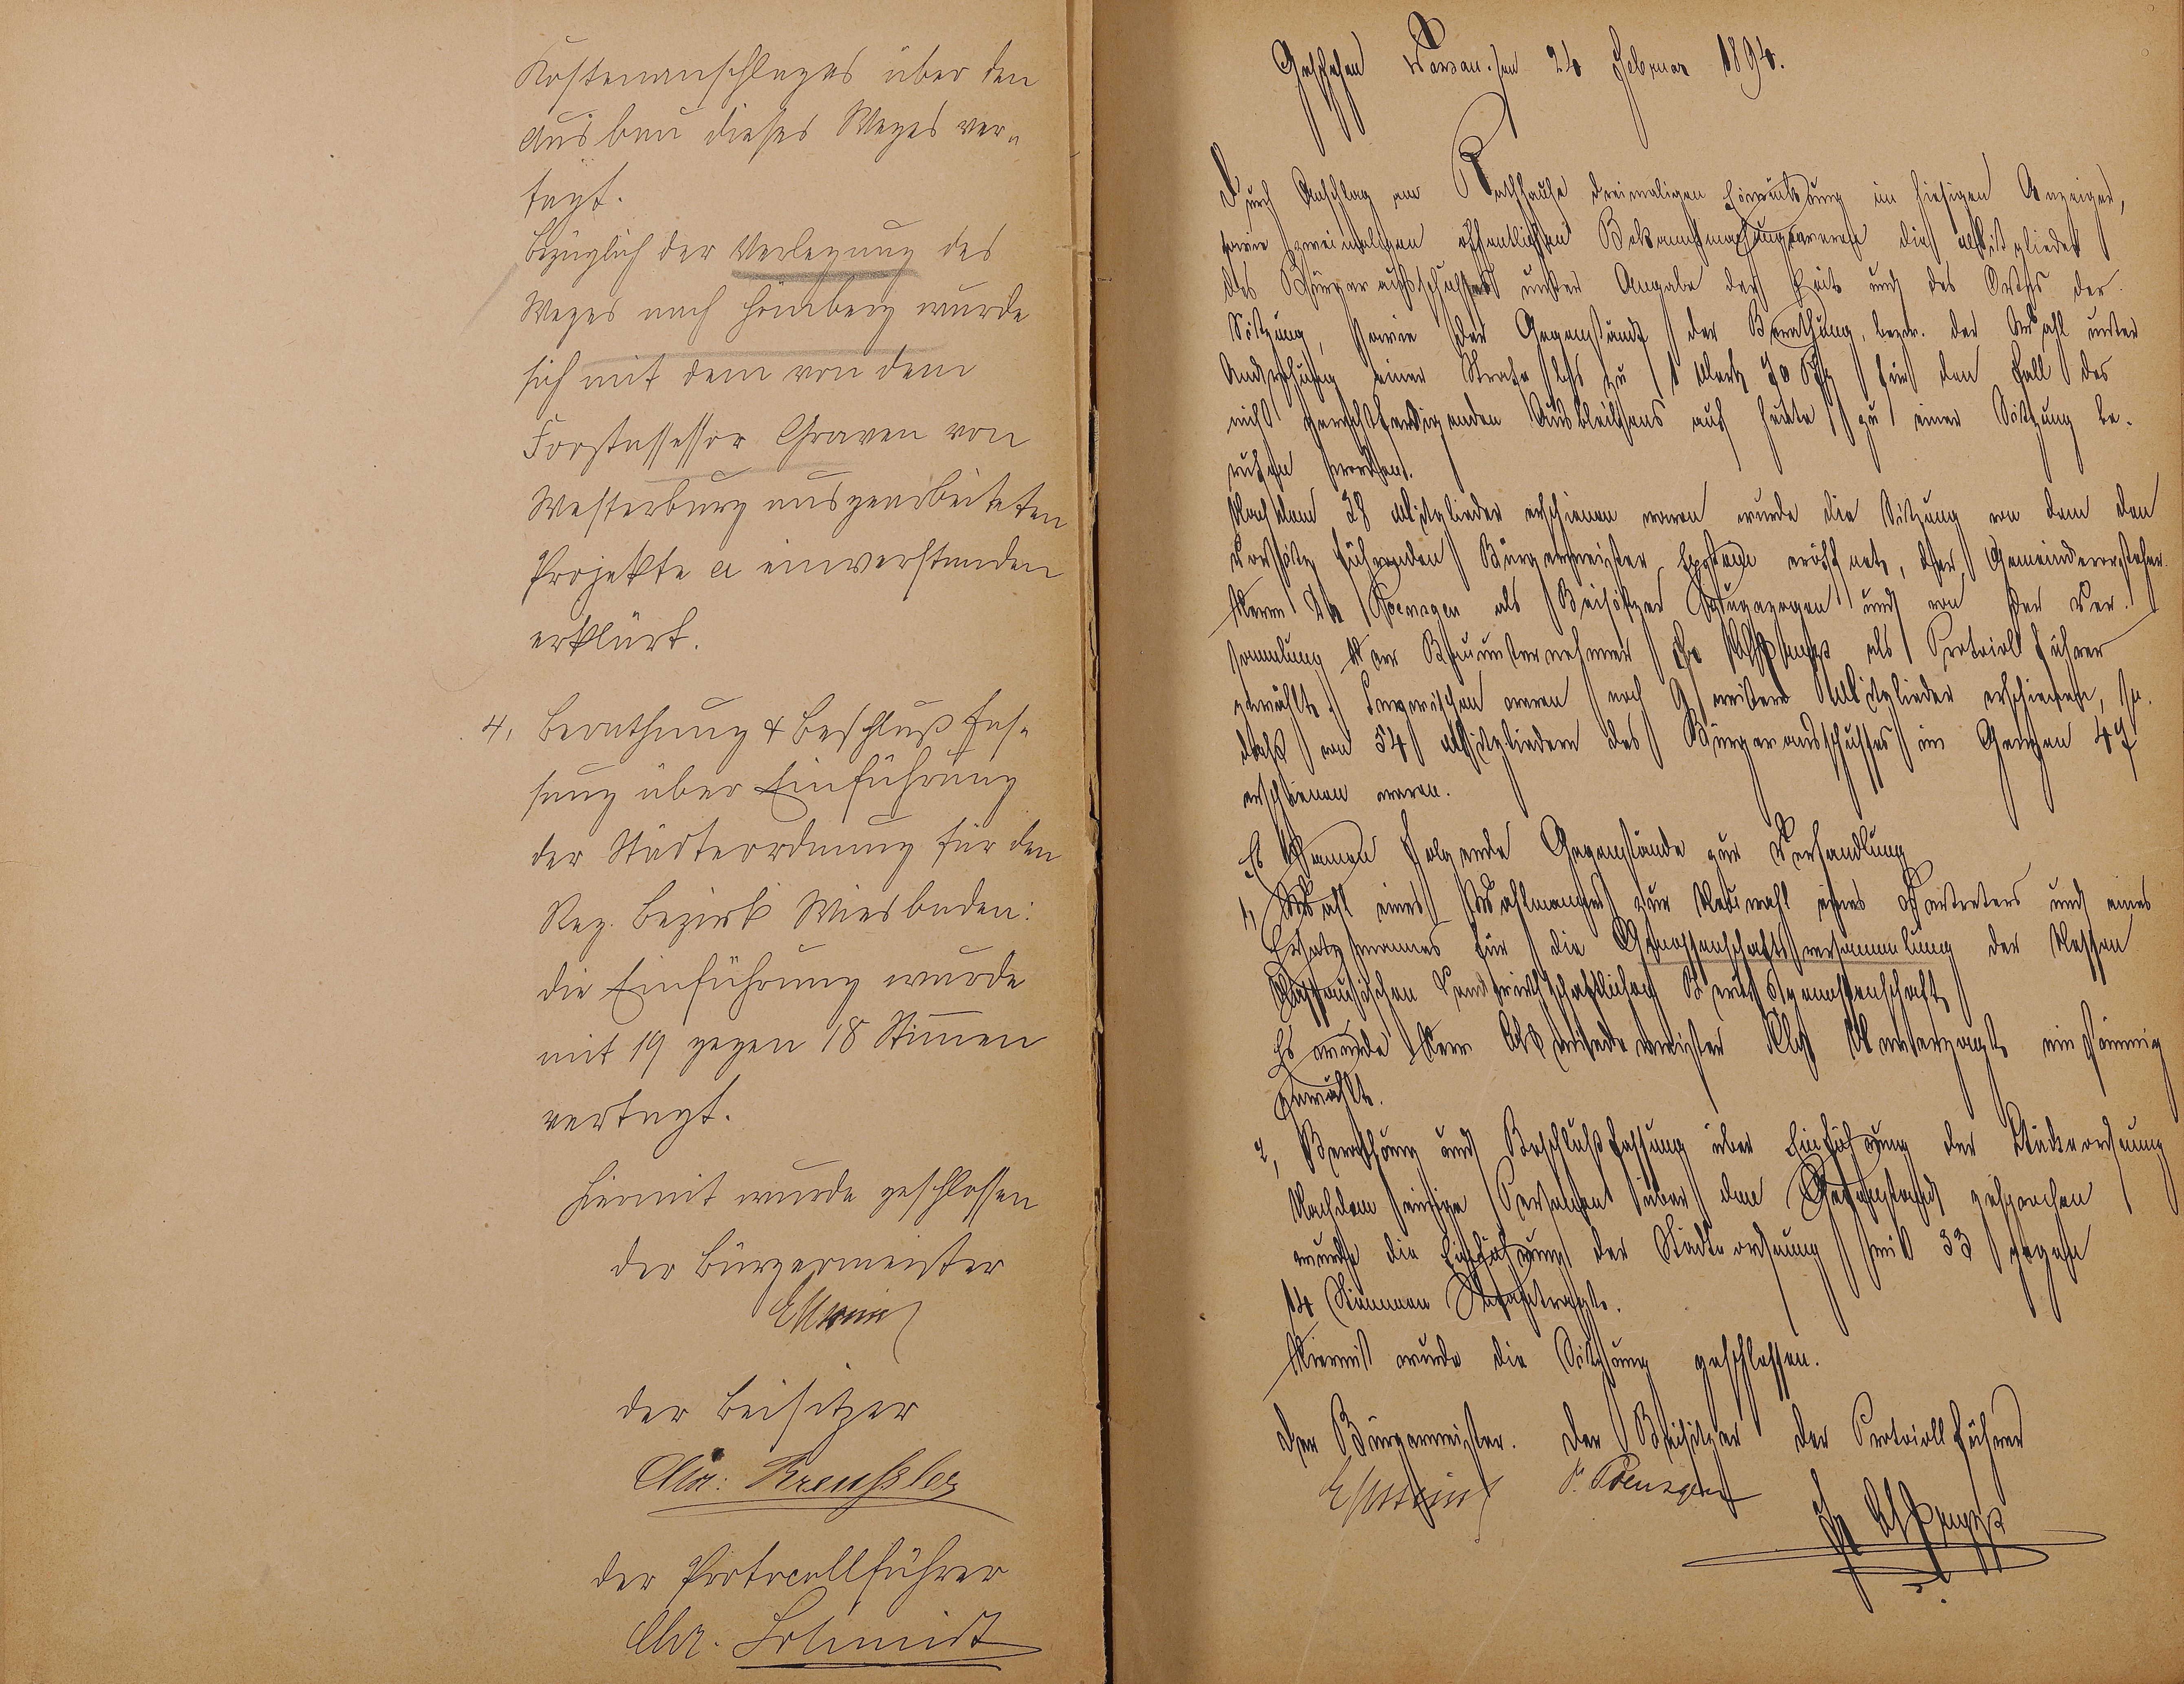 Kostenanschlages über den
Ausbau dieses Weges ver-
tagt.
Bezüglich der Verlegung des
Weges nach Homberg wurde
sich mit dem von dem
Forstassessor Graven von
Westerburg ausgearbeiteten
Projekte a einverstanden
erklärt.
4, Berathung & Beschlußfas-
sung über Einführung
der Städteordnung für den
Reg. Bezirk Wiesbaden:
die Einführung wurde
mit 19 gegen 18 Stimmen
vertagt.
Hiermit wurde geschlossen
der Bürgermeister
der Beisitzer
Chr: Kreußler
der Protocollführer
Chr. Schmidt
Geschehen Nassau den 24 Februar 1894.
Durch Anschlag am Rathhause dreimaligen Einrückung im hiesigen Anzeiger,
sowie zweimaligen öffentlichen Bekanntmachung waren die Mitglieder
des Bürgerausschusses unter Angabe der Zeit und des Ortes der
Sitzung, sowie der Gegenstände der Berathung, bezw. der Wahl unter
Androhung einer Strafe bis zu 1 Mark 70 Pfg für den Fall des
nicht gerechtfertigenden Ausbleibens auf heute zu einer Sitzung be-
rufen worden.
Nachdem 38 Mitglieder erschienen waren wurde die Sitzung von dem den
Vorsitz führenden Bürgermeister eröffnet, der Gemeindevorsteher
Herr Dr Poensgen als Beisitzer zugezogen und von der Ver-
sammlung Herr Bauunternehmer als Protocollführer
gewählt. Inzwischen waren noch 9 weitere Mitglieder erschienen, so
daß von 54 Mitgliedern des Bürgerausschusses im Ganzen 47
erschienen waren.
Es kamen folgende Gegenstände zur Verhandlung
1, Wahl eines Wahlmannes zur Neuwahl eines Vertreters und eines
Ersatzmannes für die Genossenschaftsversammlung der Hessen
Nassauischen Landwirthschaftlichen Berufsgenossenschaft
Es wurde Herr einstimmig
gewählt.
2, Berathung und Beschlußfassung über Einführung der Städteordnung
Nachdem einige Personen über den Gegenstand gesprochen
wurde die Einführung der Städteordnung mit 33 gegen
14 Stimmen
Hiermit wurde die Sitzung geschlossen.
Der Bürgermeister. Der Beisitzer Der Protocollführer
Dr. Poensgen